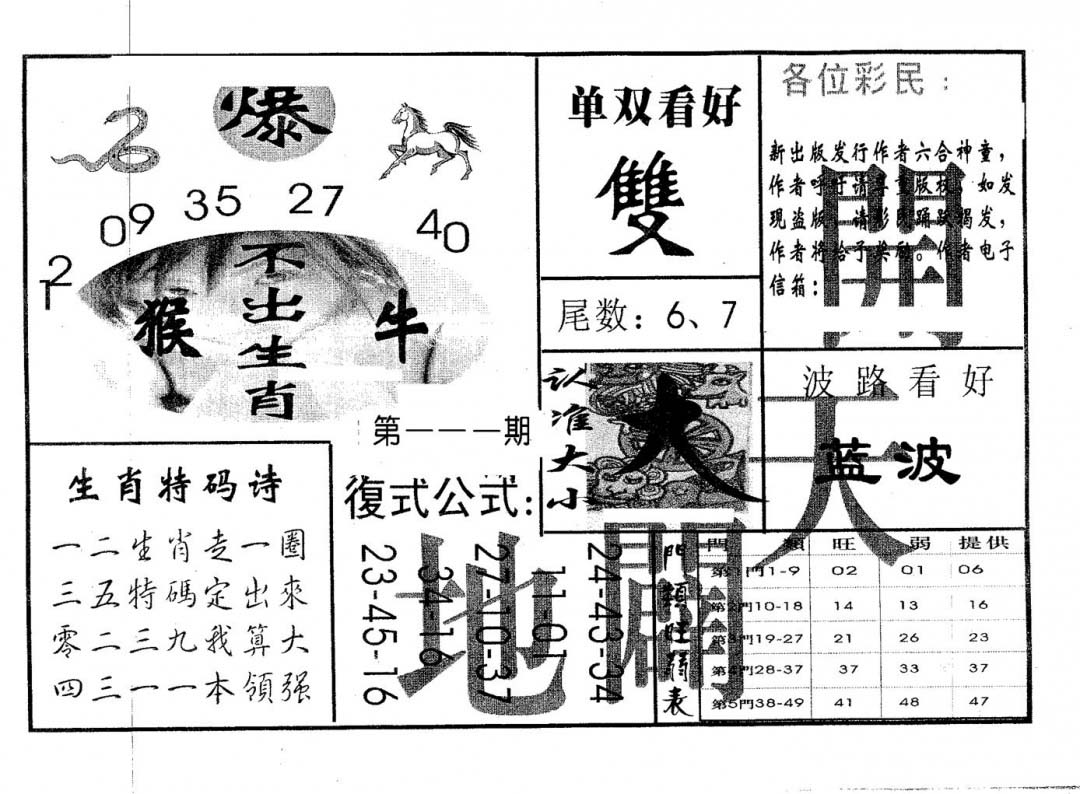 爆
09 35 27 40
12
猴
不出生肖
牛
第一一一期
单双看好
雙
尾数：6、7
各位彩民：
新出版发行作者六合神童，
作者呼吁请尊重版权，如发
现盗版，请彩民踊跃揭发，
作者将给予奖励。作者电子
信箱：
認准大小
大
波路看好
蓝波
開天
闢地
生肖特码诗
一二生肖走一圈
三五特碼定出來
零二三九我算大
四三一一本領强
復式公式：
23-45-16
34-16
27-10-37
11-01
24-43-34
門類旺弱表
門類 旺 弱 提供
第1門1-9 02 01 06
第2門10-18 14 13 16
第3門19-27 21 26 23
第4門28-37 37 33 37
第5門38-49 41 48 47